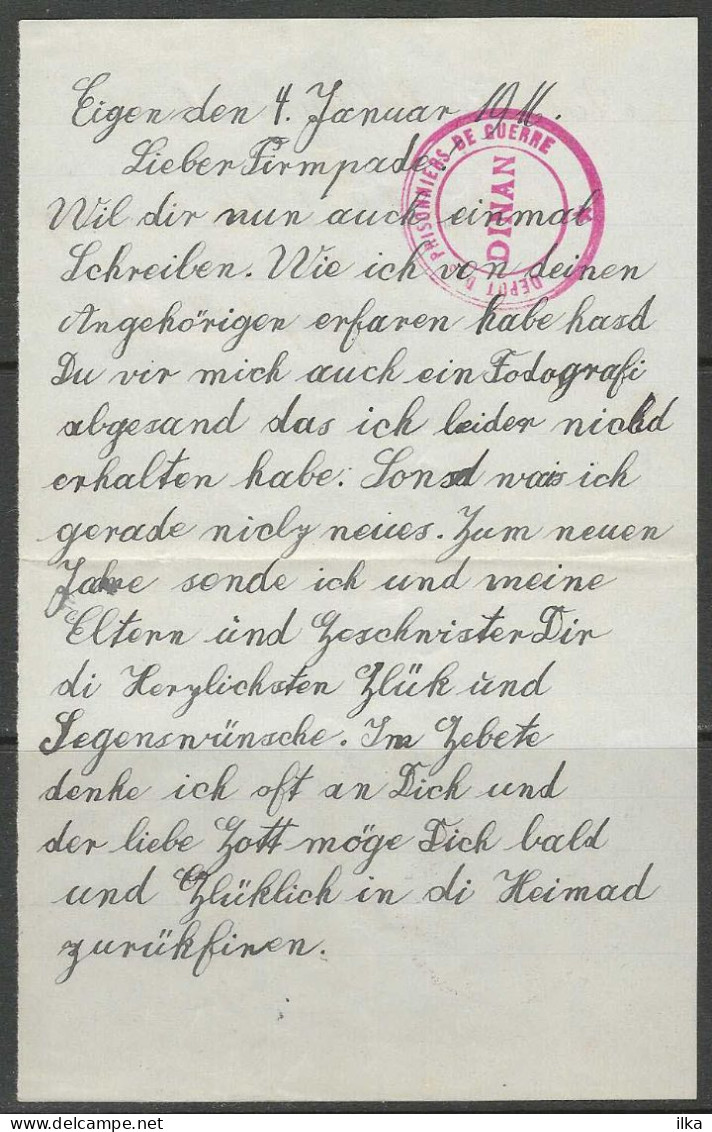 Eigen den 4. Januar 1916.
Lieber Firmpade.
DEPOT DE PRISONNIERS DE GUERRE
DINAN
Wil dir nun auch einmal
Schreiben. Wie ich von deinen
Angehörigen erfaren habe hasd
Du vir mich auch ein Fodografi
abgesand das ich leider nichd
erhalten habe. Sonsd wais ich
gerade nichz neues. Zum neuen
Jahre sende ich und meine
Eltern ünd Geschwister Dir
di Herzlichsten Glük ünd
Segenswünsche. Im Gebete
denke ich oft an Dich und
der liebe Gott möge Dich bald
und Glüklich in di Heimad
zurükfiren.
ilka